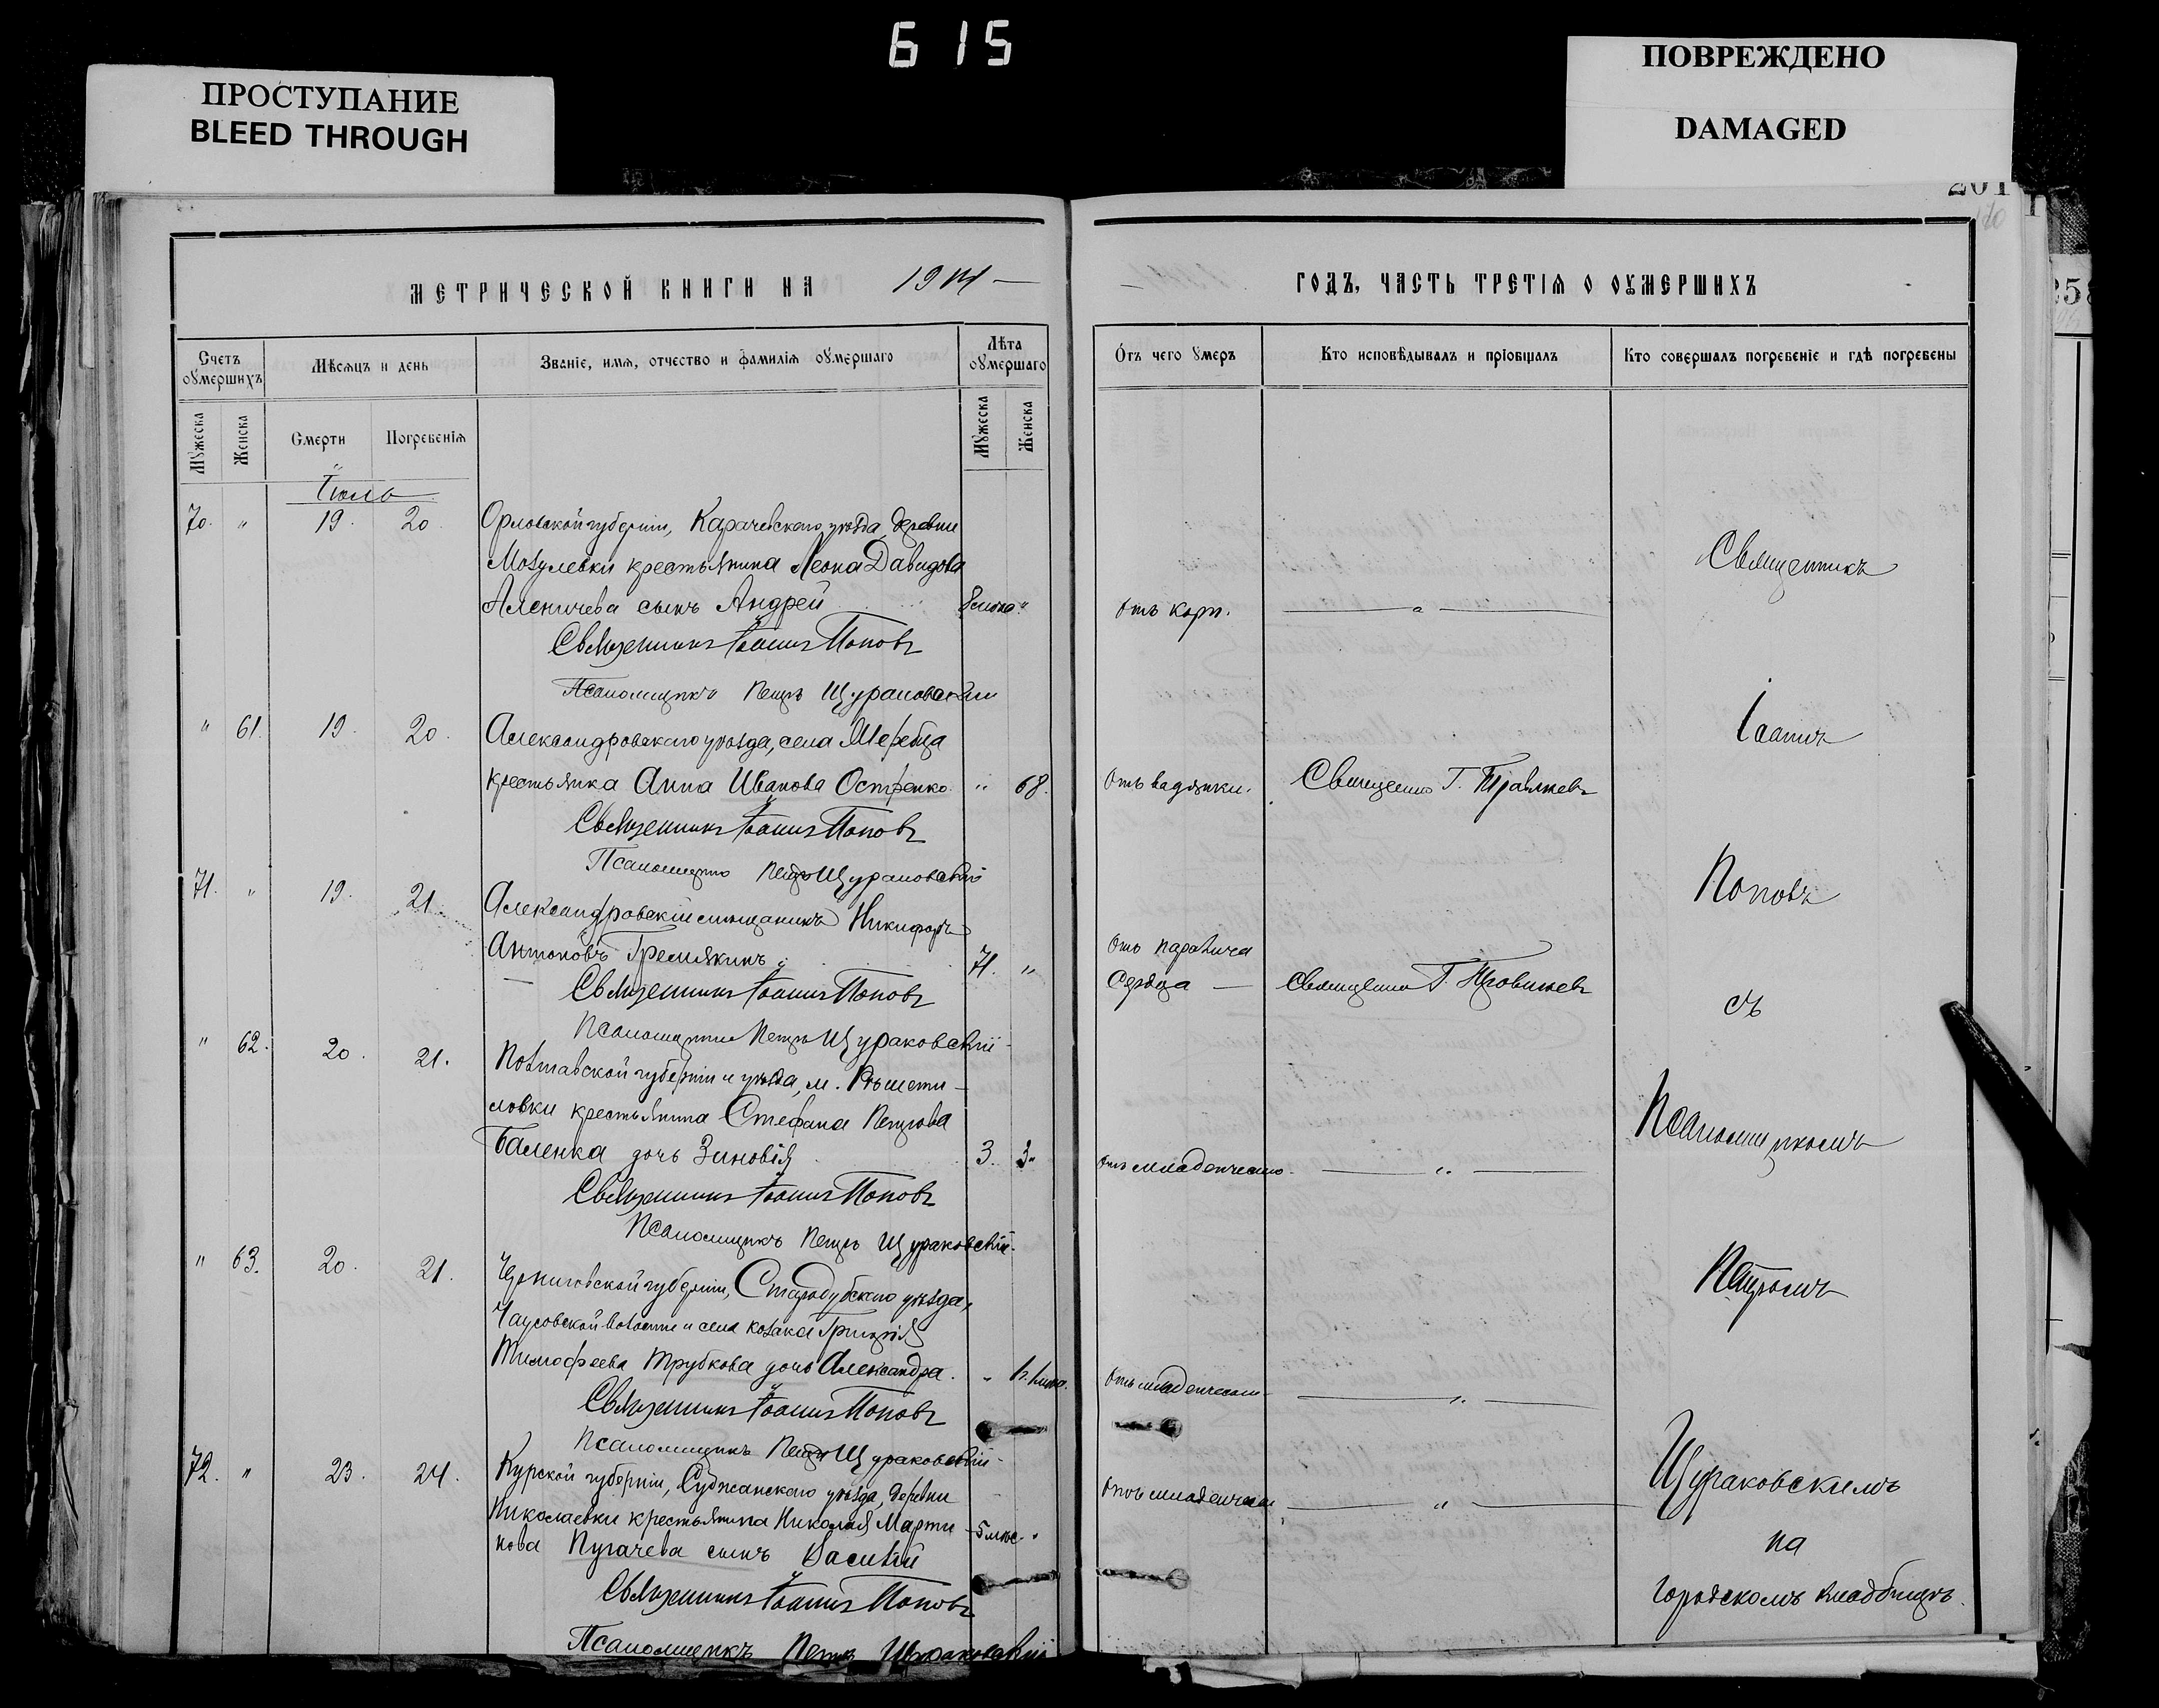 615
ПРОСТУПАНИЕ
BLEED THROUGH
ПОВРЕЖДЕНО
DAMAGED
201
МЕТРИЧЕСКОЙ КНИГИ НА 19
ГОДЪ, ЧАСТЬ ТРЕТІЯ О ОУМЕРШИХЪ
Счетъ оумершихъ
Мѣсяцъ и день
Званіе, имя, отчество и фамилія оумершаго
Лѣта оумершаго
Отъ чего умеръ
Кто исповѣдывалъ и пріобщалъ
Кто совершалъ погребеніе и гдѣ погребены
Мужеска
Женска
Смерти
Погребенія
Мужеска
Женска
Іюль
70. " 19. 20. Орловской губерніи, Карачевскаго уѣзда, деревни
крестьянина Леона Давидова
Аленичева сынъ Андрей "
Отъ кори.
Священникъ Іоаннъ Поповъ
Псаломщикъ Петръ Щураковскій
" 61. 19. 20. Александровскаго уѣзда, села Жеребца
крестьянка Анна Иванова Остренко. " 68.
Отъ водянки. Г.
Священникъ Іоаннъ Поповъ
Псаломщикъ Петръ Щураковскій
71. " 19. 21. Александровскій мѣщанинъ Никифоръ
Антоновъ Гремякинъ. 71. "
Отъ паралича
сердца Г.
Священникъ Іоаннъ Поповъ
Псаломщикъ Петръ Щураковскій
" 62. 20. 21. Полтавской губерніи и уѣзда, м. Рѣшети-
ловки крестьянина Стефана Петрова
Баленка дочь Зиновія 3.
Священникъ Іоаннъ Поповъ
Псаломщикъ Петръ Щураковскій.
" 63. 20. 21. Черниговской губерніи, Стародубскаго уѣзда,
Чаусовской волости и села козака Григорія
Тимофеева Трубкова дочь Александра.
Священникъ Іоаннъ Поповъ
Псаломщикъ Петръ Щураковскій
72. " 23. 24. Курской губерніи, Суджанскаго уѣзда, деревни
Николаевки крестьянина Николая Марти
нова Пугачева сынъ Василій 5 мѣс. "
Священникъ Іоаннъ Поповъ
Псаломщикъ Петръ Щураковскій
Священникъ
Іоаннъ
Поповъ
съ
Псаломщикомъ
Петромъ
Щураковскимъ
на
городскомъ кладбищѣ.